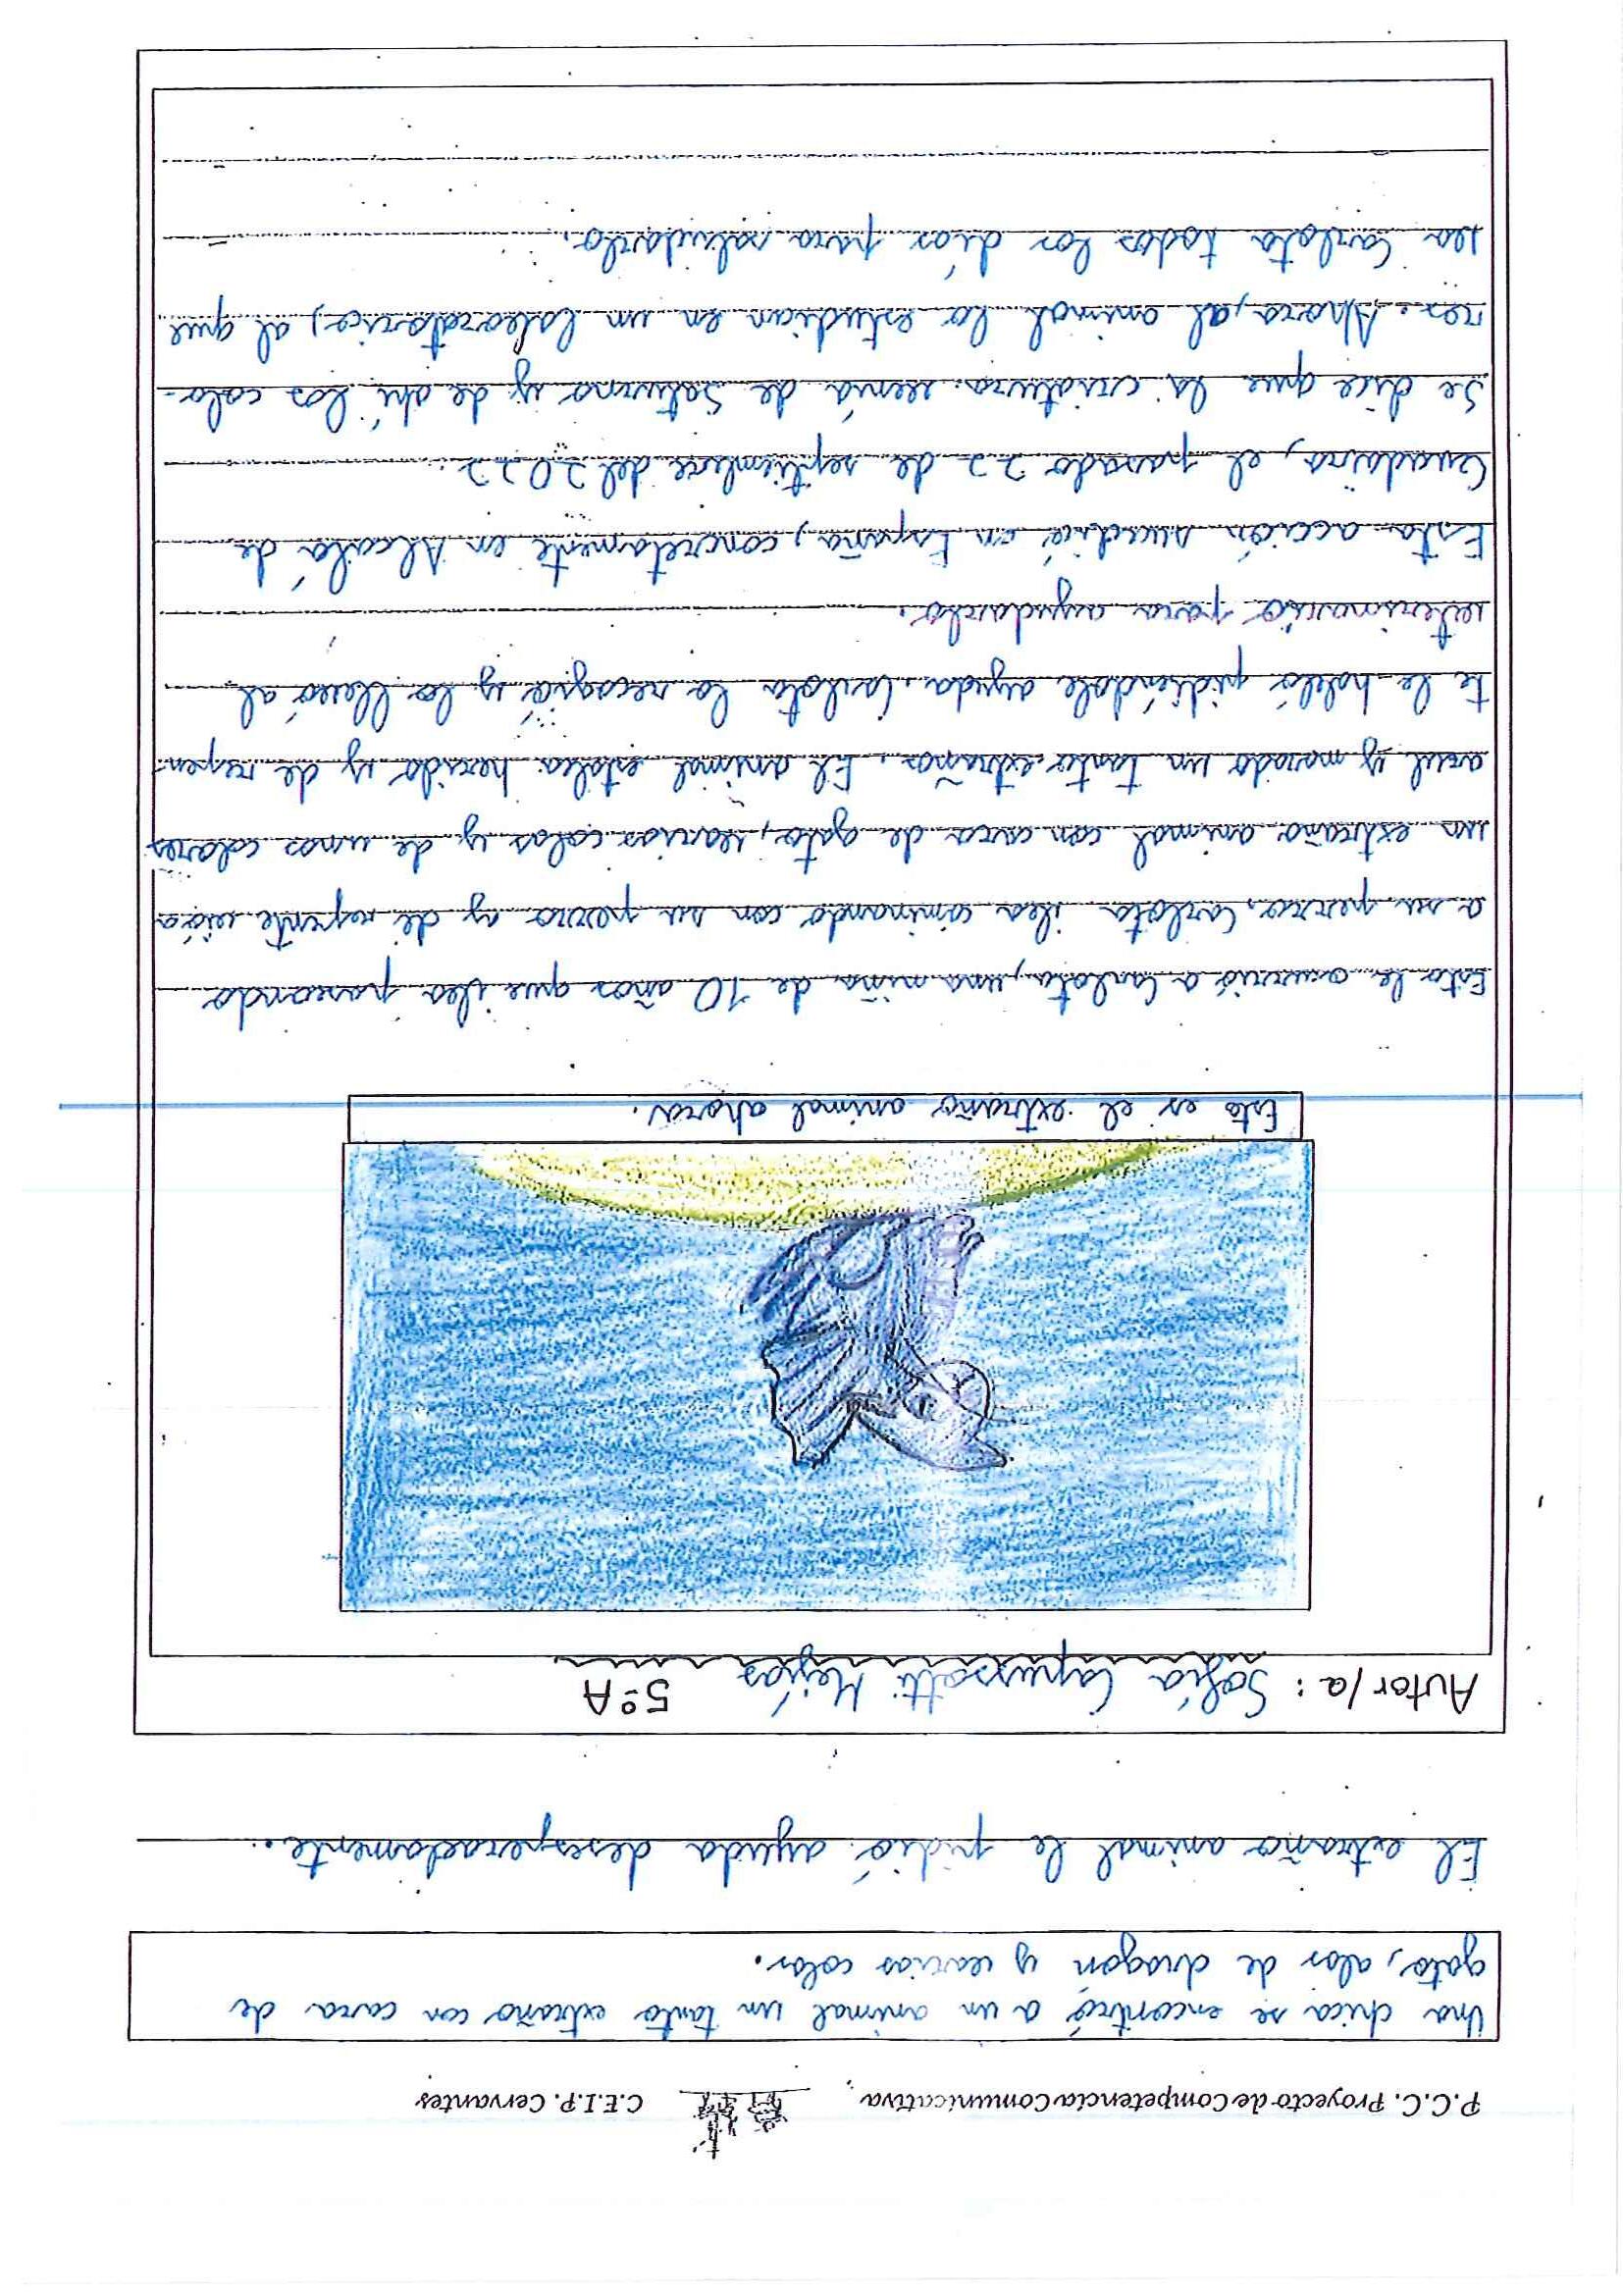 P.C.C. Proyecto de Competencia Comunicativa. C.E.I.P. Cervantes
Una chica se encontró a un animal un tanto extraño con cara de
gato, alas de dragon y varias colas.
El extraño animal le pidió ayuda desesperadamente.
Autor/a: Sofía Capurretti Mejías 5ºA
Este es el extraño animal ahora.
Esto le ocurrió a Carlota, una niña de 10 años que iba paseando
a su perro, Carlota iba caminando con su perro y de repente vió a
un extraño animal con cara de gato, varias colas y de unos colores
azul y morado un tanto extraños. El animal estaba herido y de repen-
te le habló pidiéndole ayuda. Carlota lo recogió y lo llevó al
veterinario para ayudarlo.
Esta acción sucedió en España, concretamente en Alcalá de
Guadaira, el pasado 22 de septiembre del 2022.
Se dice que la criatura venía de Saturno y de ahí los colo-
res. Ahora, al animal lo estudian en un laboratorio, al que
va Carlota todos los días para saludarlo.